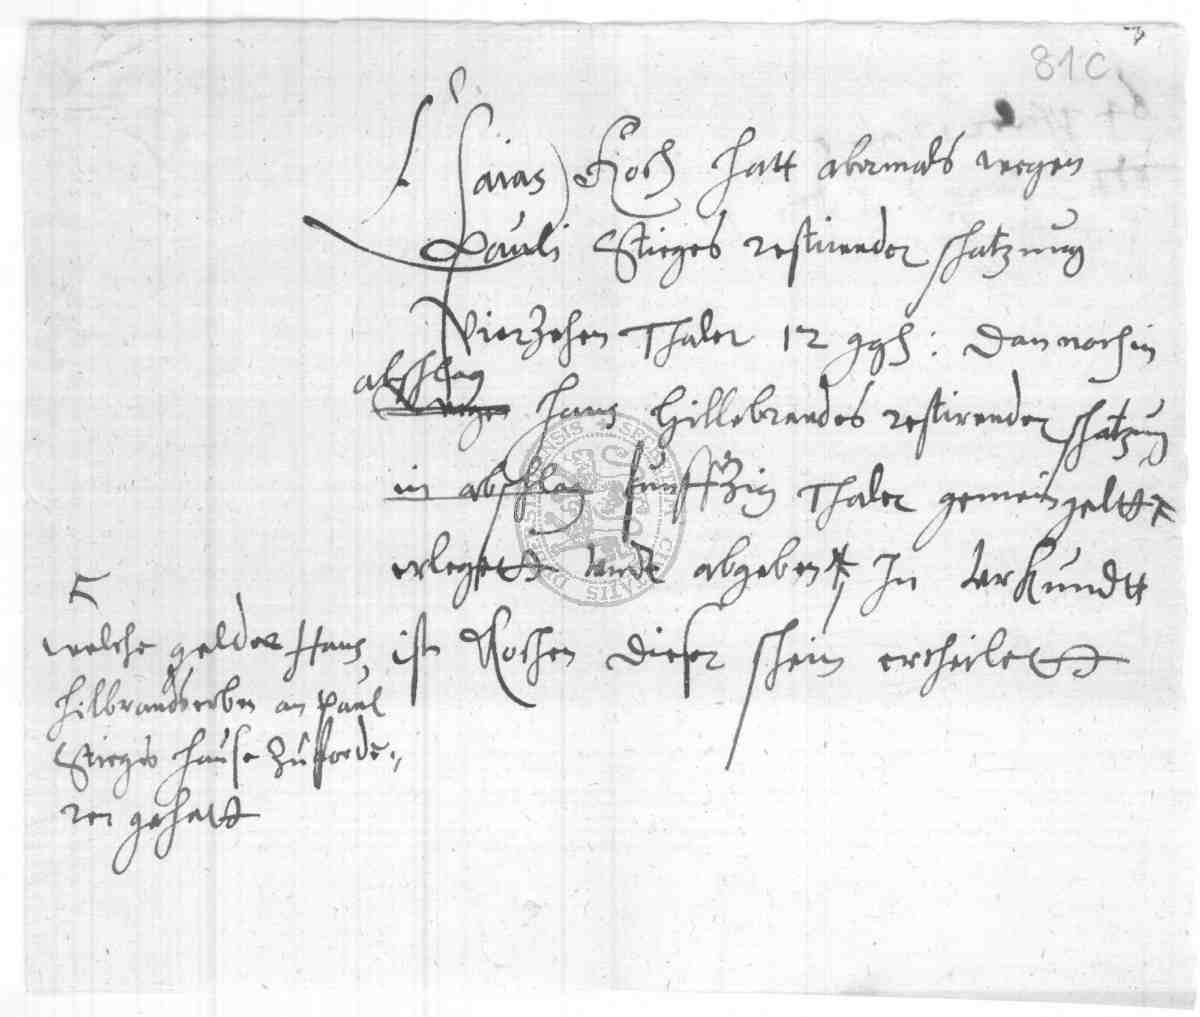 81c
Esaias Koch hatt abermals wegen
Pauli Stieges restirender schatzung
Vierzehen Thaler 12 ggh: Dan noch in
abschlag
hans Hillebrandes restirender schatzung
in abschlag funfftzig Thaler gemein geltt
erlegett undt abgeben In Uhrkundtt
ist Kochen dieser schein ertheilett
welche gelder Hans
Hilbrands erben an Paul
Stieges hause zu forde„
ren gehatt